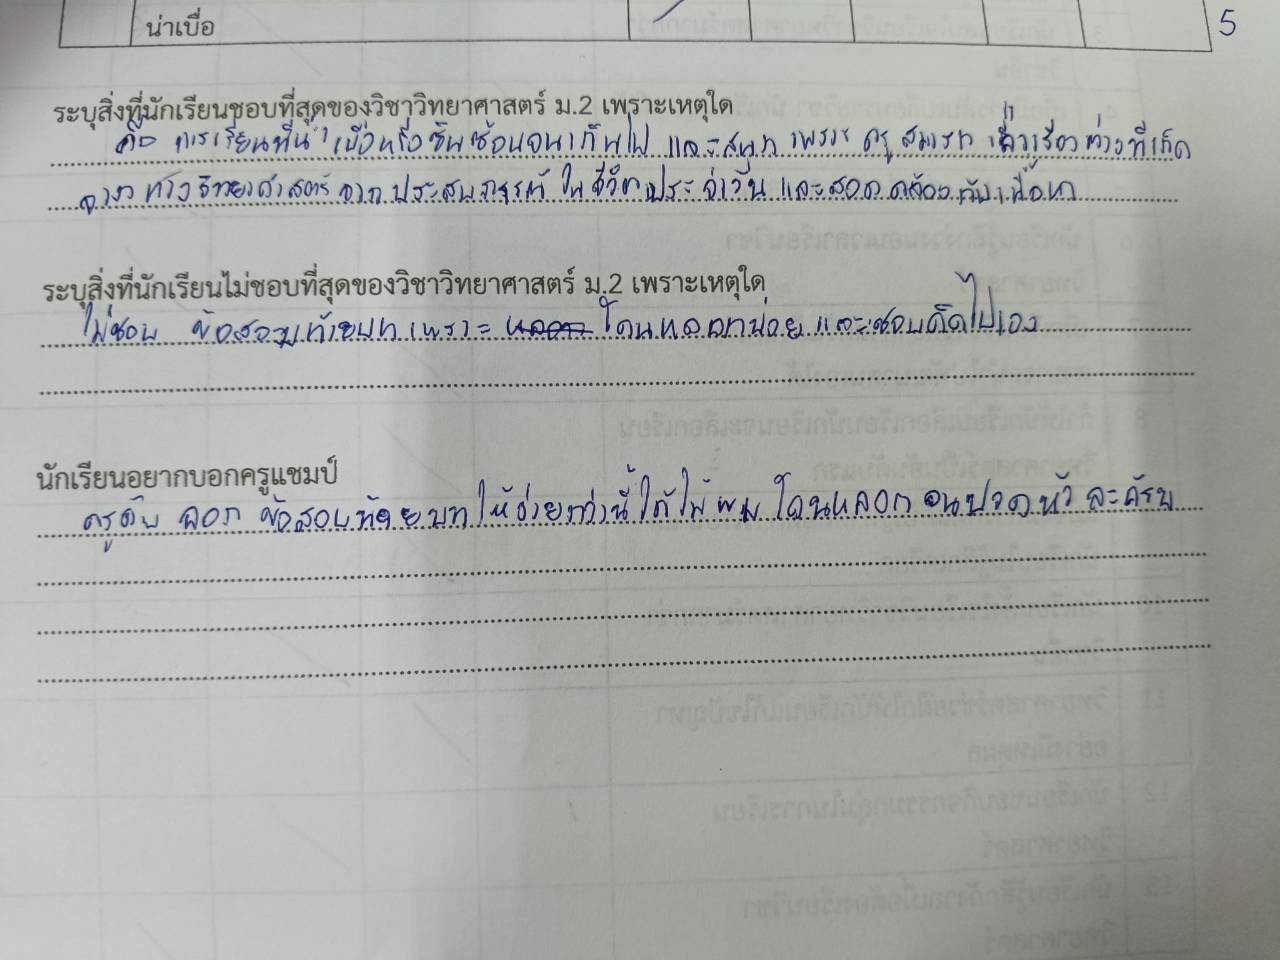 น่าเบื่อ
5
ระบุสิ่งที่นักเรียนชอบที่สุดของวิชาวิทยาศาสตร์ ม.2 เพราะเหตุใด
คือ การเรียนที่น่าเบื่อหรือซับซ้อนจนเกินไป และสนุก เพราะ ครู สามารถ เล่าเรื่อง ต่างที่เกิด
ทาง วิทยาศาสตร์ จาก ประสบการณ์ ในชีวิตประจำวัน และสอดคล้องกับเนื้อหา
ระบุสิ่งที่นักเรียนไม่ชอบที่สุดของวิชาวิทยาศาสตร์ ม.2 เพราะเหตุใด
ไม่ชอบ ข้อสอบท้ายบท เพราะ โดนหลอกบ่อย และชอบคิดไปเอง
นักเรียนอยากบอกครูแชมป์
ครูคับ ออก ข้อสอบท้ายบท ให้ง่ายกว่านี้ได้ไม่ผม โดนหลอก จนปวดหัว ละครับ